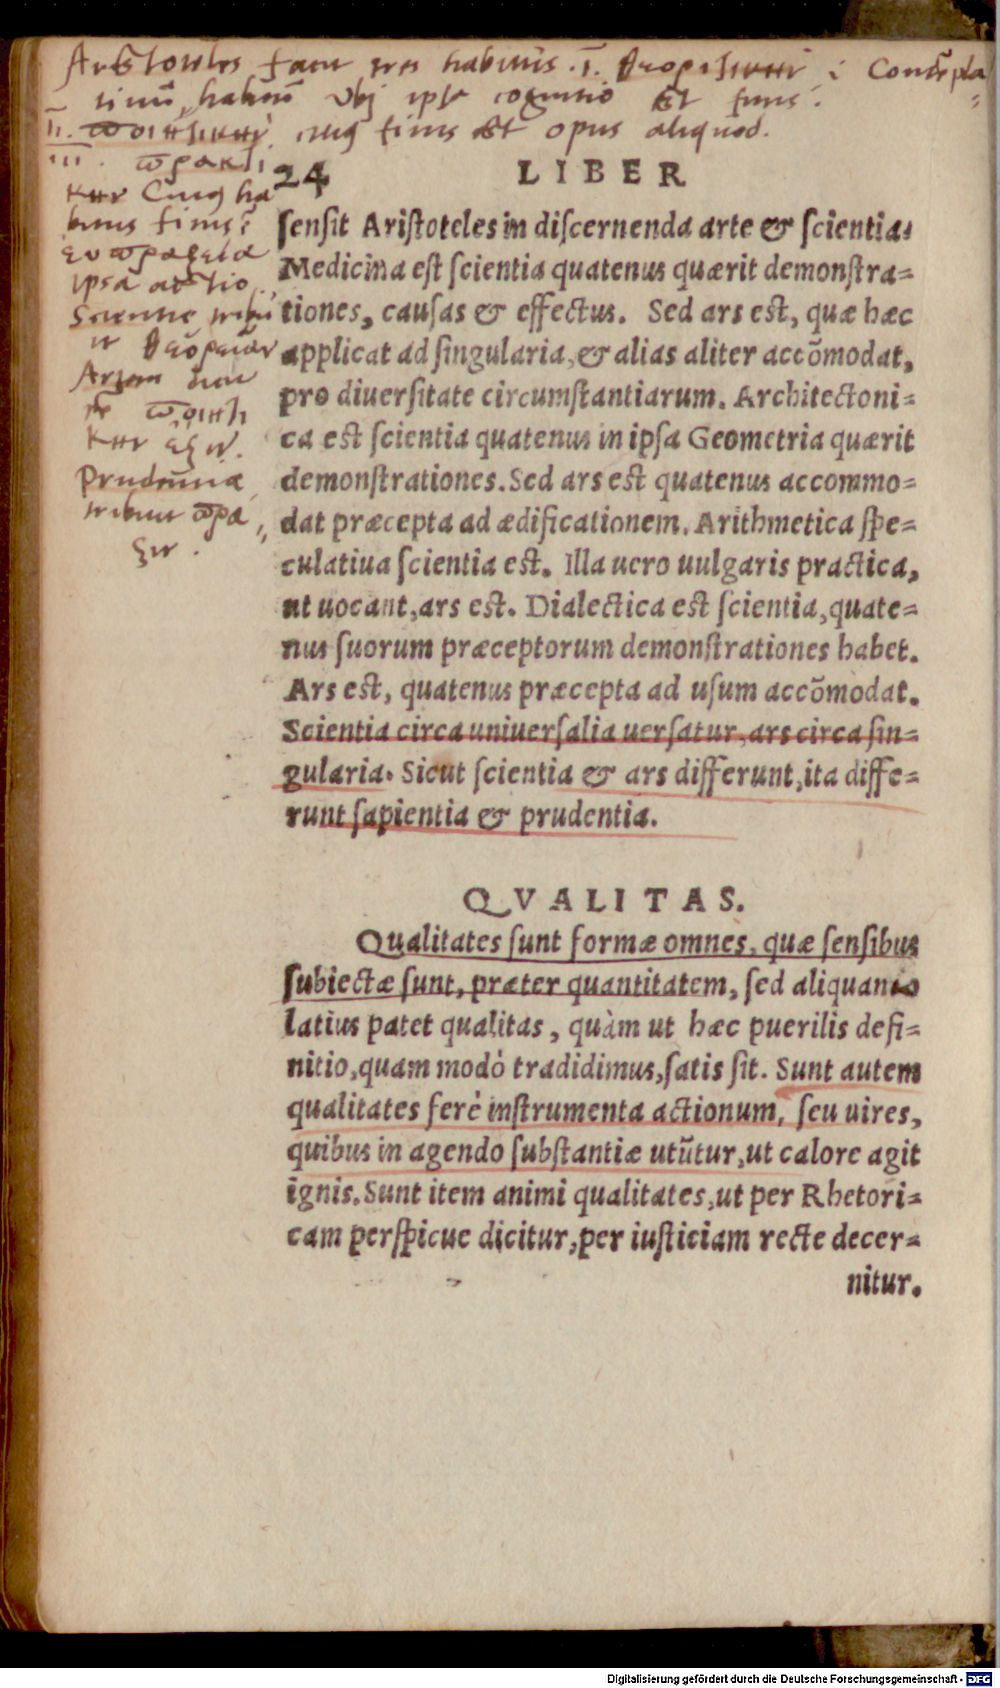 Aristoteles facit tres habitus .I. θεωρητικην i Contēpla
tiuū habitū Vbj ipsa cognitio est finis.
II. ποιητικην cuius finis est opus aliquod.
III. πρακτι
κην Cuius ha
bitus finis ē
ευπραξεια
ipsa actio
Scientie tribu
it θεωρειαν
Artem
ποιητι
κην εξιν.
Prudentiæ
tribuit πρα
ξιν.
24 LIBER
ſenſit Ariſtoteles in diſcernenda arte & ſcientia:
Medicina eſt ſcientia quatenus quærit demonſtra=
tiones, cauſas & effectus. Sed ars est, quæ hæc
applicat ad ſingularia, & alias aliter accōmodat,
pro diuerſitate circumſtantiarum. Architectoni=
ca est ſcientia quatenus in ipſa Geometria quærit
demonſtrationes. Sed ars est quatenus accommo=
dat præcepta ad ædificationem. Arithmetica ſpe=
culatiua ſcientia est. Illa uero uulgaris practica,
ut uocant, ars est. Dialectica est ſcientia, quate=
nus ſuorum præceptorum demonſtrationes habet.
Ars est, quatenus præcepta ad uſum accōmodat.
Scientia circa uniuerſalia uerſatur, ars circa ſin=
gularia. Sicut ſcientia & ars differunt, ita diffe=
runt ſapientia & prudentia.
QVALITAS.
Qualitates ſunt formæ omnes, quæ ſenſibus
ſubiectæ ſunt, præter quantitatem, ſed aliquanto
latius patet qualitas, quàm ut hæc puerilis defi=
nitio, quam modò tradidimus, ſatis ſit. Sunt autem
qualitates ferè inſtrumenta actionum, ſeu uires,
quibus in agendo ſubſtantiæ utūtur, ut calore agit
ignis. Sunt item animi qualitates, ut per Rhetori=
cam perſpicue dicitur, per iuſticiam recte decer=
nitur.
Digitalisierung gefördert durch die Deutsche Forschungsgemeinschaft - DFG